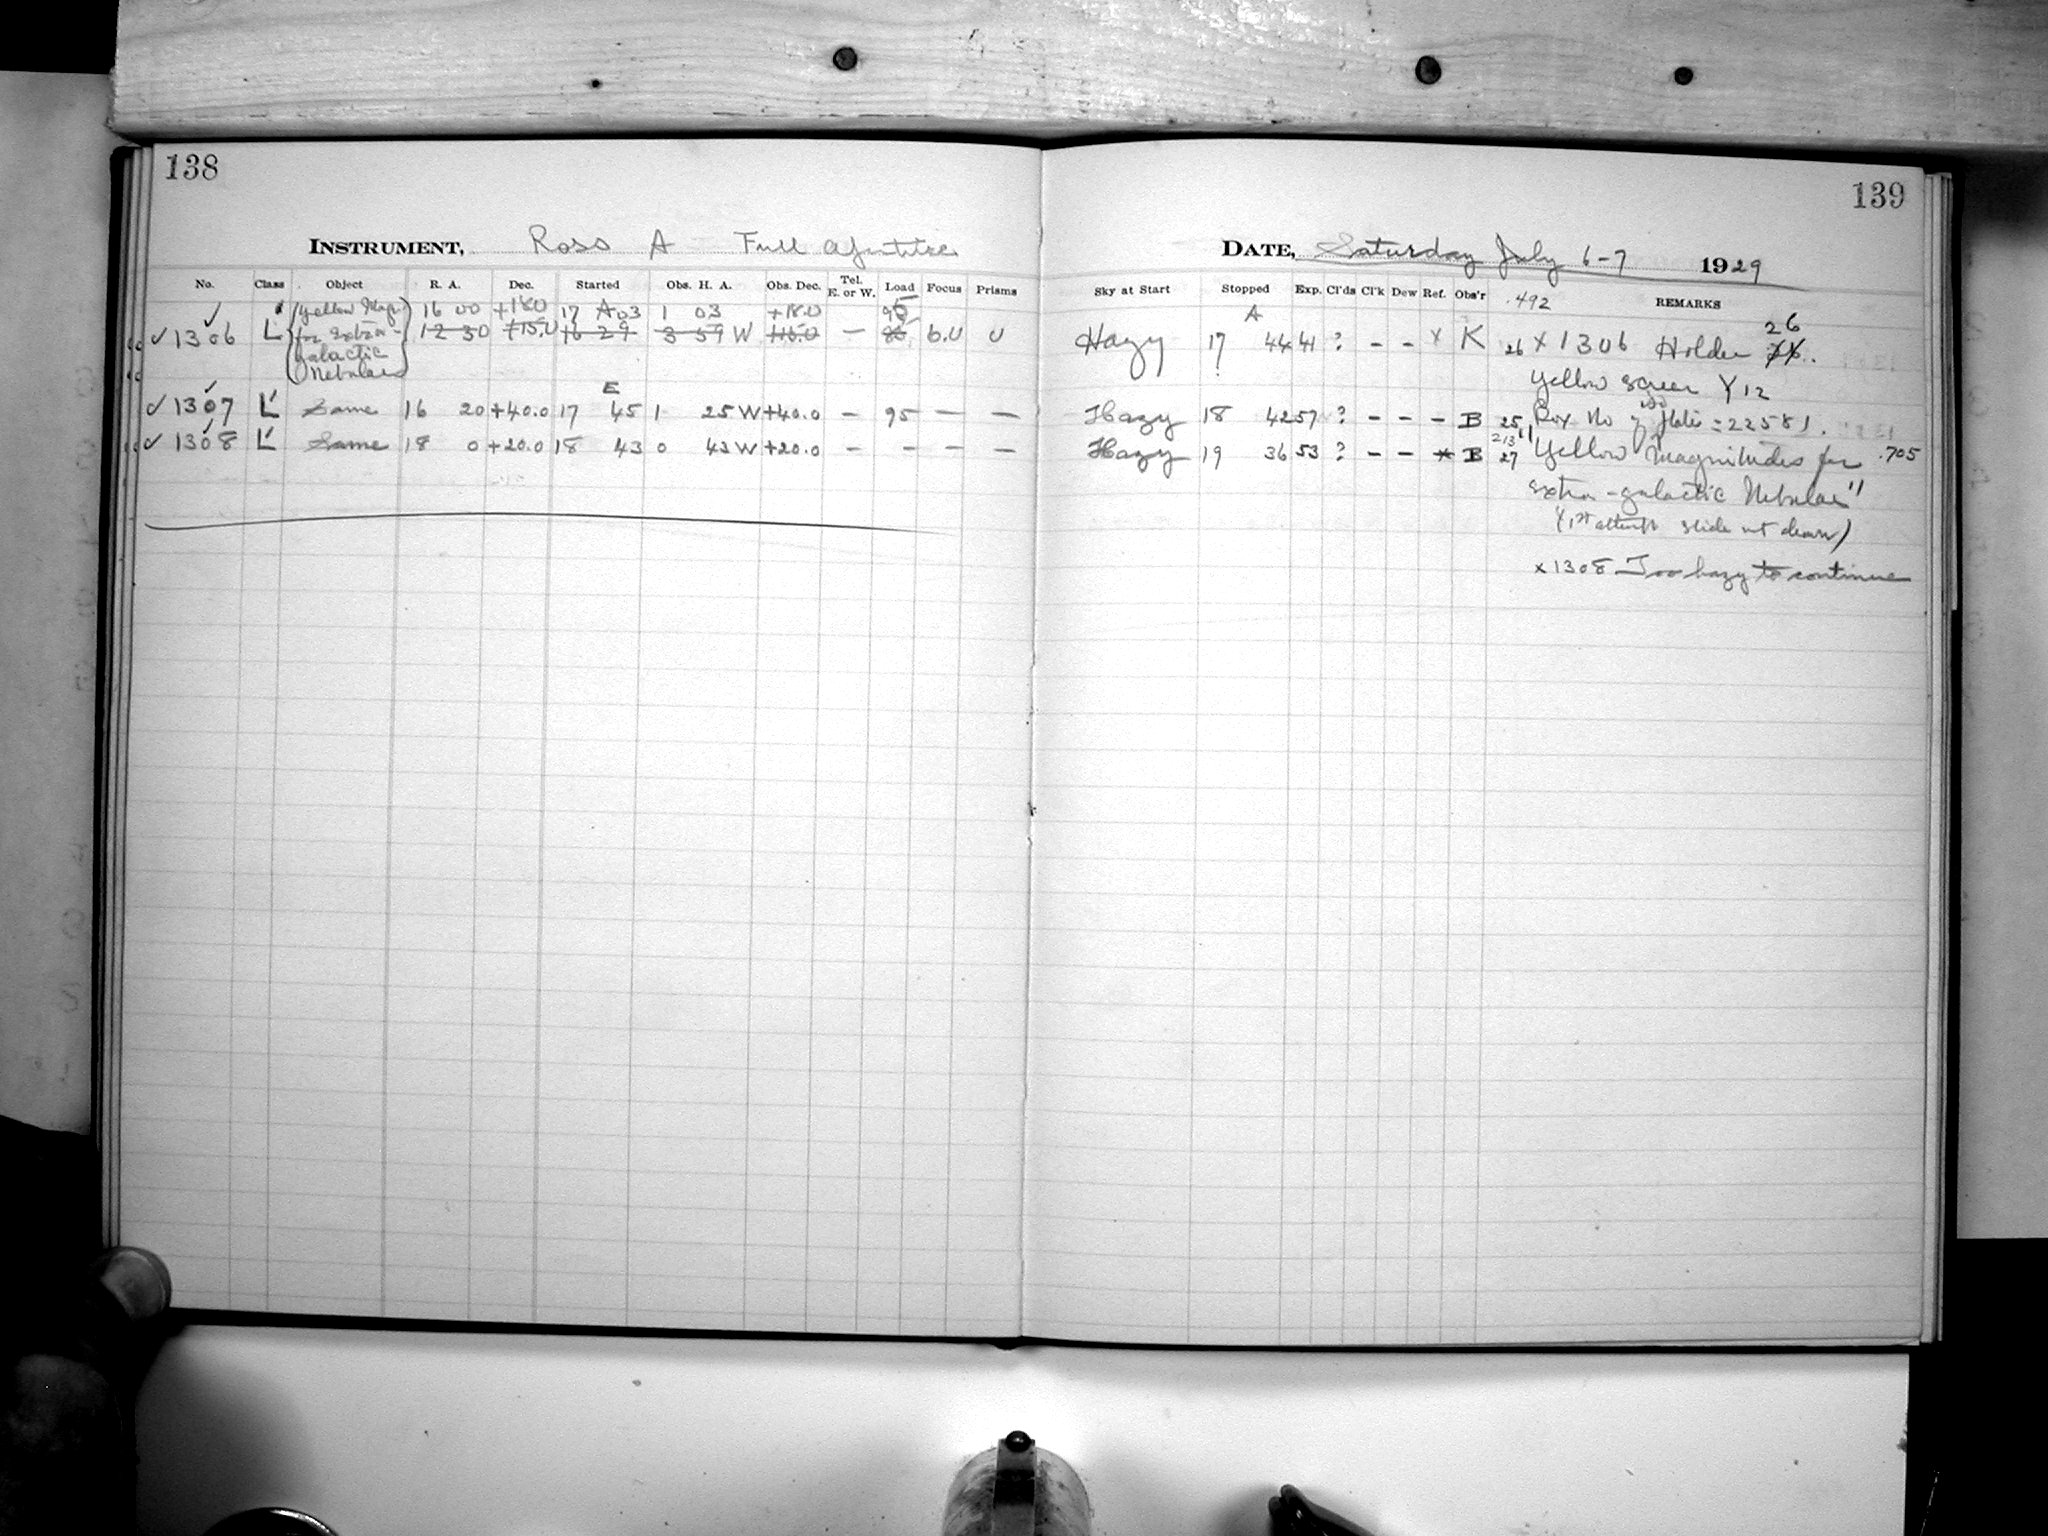 138
INSTRUMENT, Ross A Full Aperture
No. Class Object R. A. Dec. Started Obs. H. A. Obs. Dec. Tel. E. or W. Load Focus Prisms
✓ (Yellow Magn. 16 00 +18.0 17 A 03 1 03 +18.0 95
✓ 1306 L for Extra- 12 30 +15.0 16 29 3 59 W +15.0 — 6.0 0
galactic
Nebulae)
E
✓ 1307 L Same 16 20 +40.0 17 45 1 25 W +40.0 — 95 — —
✓ 1308 L Same 18 0 +20.0 18 43 0 43 W +20.0 — — — —
139
DATE, Saturday July 6-7 1929
Sky at Start Stopped Exp. Cl'ds Cl'k Dew Ref. Obs'r .492 REMARKS
A 26
Hazy 17 44 41 ? — — x K 26 x 1306 Holder
Yellow screen Y12
Hazy 18 42 57 ? — — — B 25 Box No of plates = 22581.
Hazy 19 36 53 ? — — * B 27 "Yellow Magnitudes for .705
extra-galactic Nebulae"
(1st attempt slide not drawn)
x 1308 Too hazy to continue